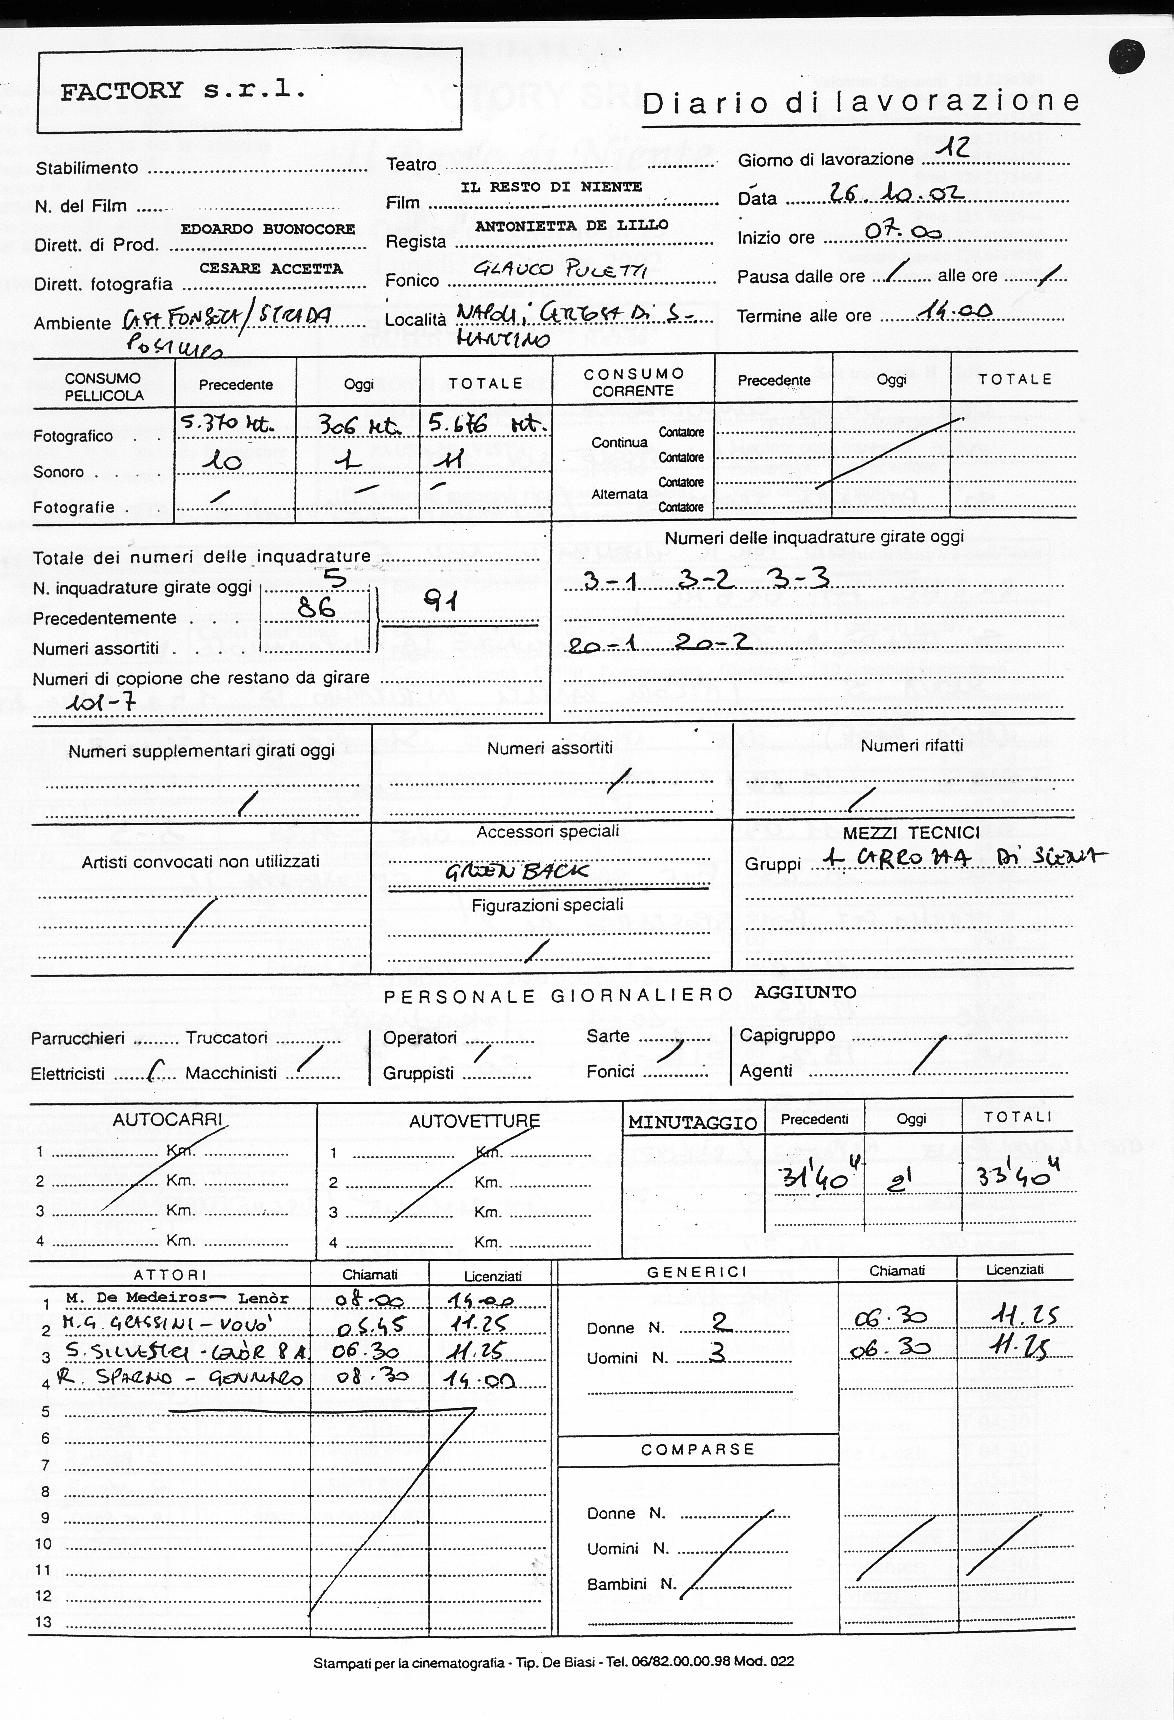 FACTORY s.r.l.
Diario di lavorazione
Stabilimento
Teatro
Giorno di lavorazione 12
N. del Film
Film IL RESTO DI NIENTE
Data 26.10.02
Dirett. di Prod. EDOARDO BUONOCORE
Regista ANTONIETTA DE LILLO
Inizio ore 07.00
Dirett. fotografia CESARE ACCETTA
Fonico GLAUCO PULETTI
Pausa dalle ore / alle ore /
Ambiente CASA FONSECA/STRADA
POSILLIPO
Località NAPOLI, CERTOSA DI S-
MARTINO
Termine alle ore 14.00
CONSUMO PELLICOLA Precedente Oggi TOTALE
Fotografico 5.370 Mt. 306 Mt. 5.676 Mt.
Sonoro 10 1 11
Fotografie / / /
CONSUMO CORRENTE Precedente Oggi TOTALE
Continua Contatore
Contatore
Alternata Contatore
Contatore
Totale dei numeri delle inquadrature
N. inquadrature girate oggi 5
Precedentemente 86 91
Numeri assortiti
Numeri di copione che restano da girare
101-7
Numeri delle inquadrature girate oggi
3-1 3-2 3-3
20-1 20-2
Numeri supplementari girati oggi
/
Numeri assortiti
/
Numeri rifatti
/
Artisti convocati non utilizzati
/
Accessori speciali
GREEN BACK
Figurazioni speciali
/
MEZZI TECNICI
Gruppi 1 CARRO MA DI SCENA
PERSONALE GIORNALIERO AGGIUNTO
Parrucchieri Truccatori Operatori Sarte Capigruppo
Elettricisti Macchinisti Gruppisti Fonici Agenti
AUTOCARRI
1 Km.
2 Km.
3 Km.
4 Km.
AUTOVETTURE
1 Km.
2 Km.
3 Km.
4 Km.
MINUTAGGIO Precedenti Oggi TOTALI
31'40" 2' 33'40"
ATTORI Chiamati Licenziati
1 M. De Medeiros— Lenòr 08.00 14.00
2 M.G. GRASSINI - VOVO' 05.45 11.25
3 S. SILVESTRI - LENÒR 8 A. 06.30 11.25
4 R. SPARNO - GENNARO 08.30 14.00
5
6
7
8
9
10
11
12
13
GENERICI Chiamati Licenziati
Donne N. 2 06.30 11.25
Uomini N. 3 06.30 11.25
COMPARSE
Donne N.
Uomini N.
Bambini N.
Stampati per la cinematografia - Tip. De Biasi - Tel. 06/82.00.00.98 Mod. 022